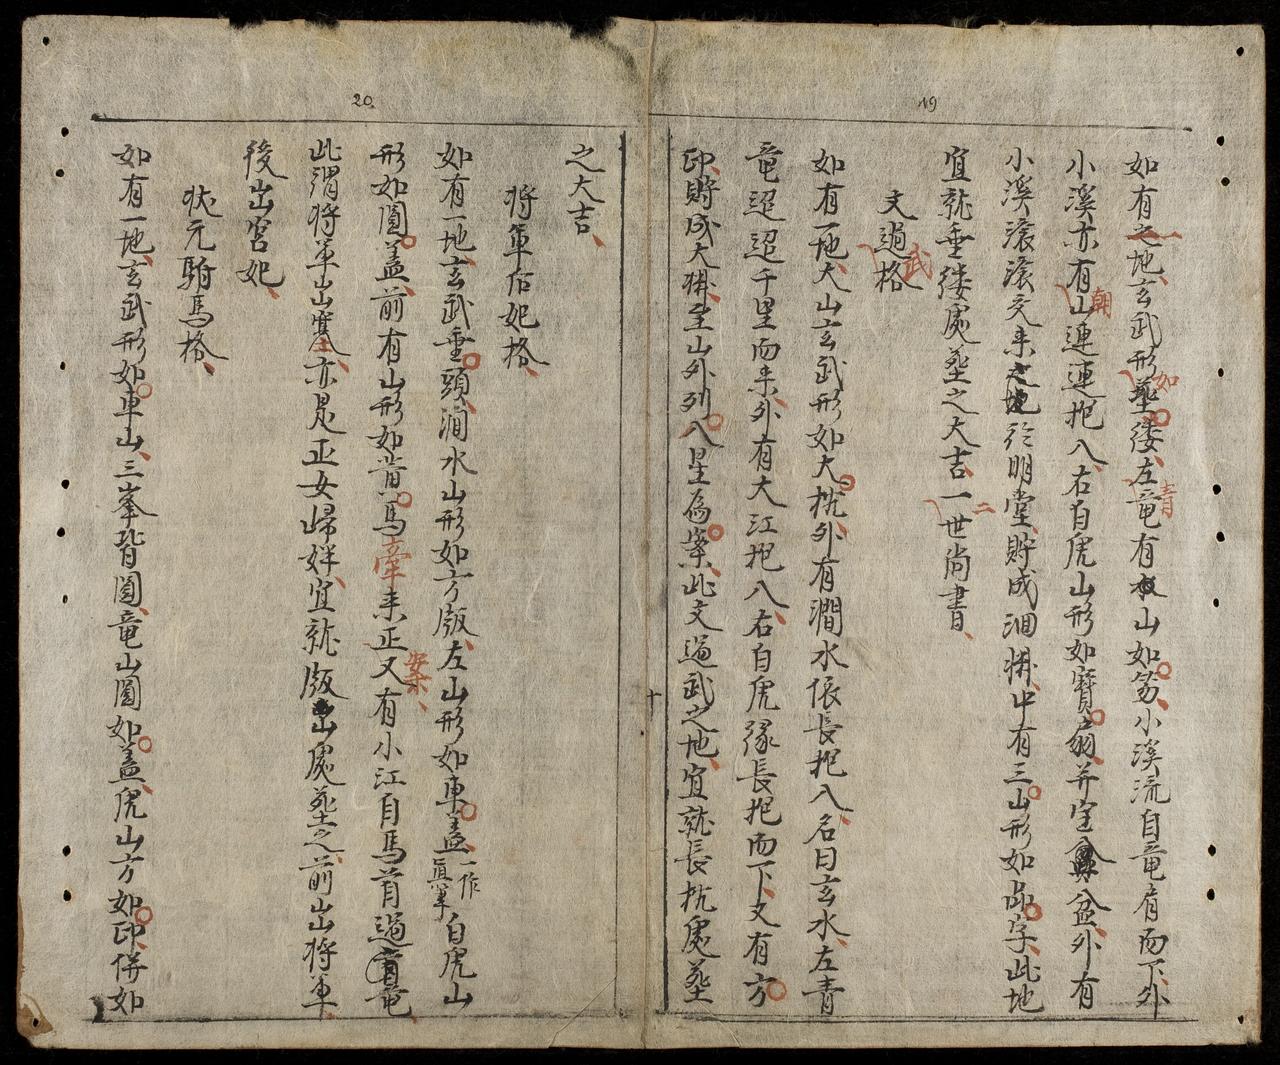 19
如有之地、玄武形如垂𦄂、左青竜有山如笏、小溪流自竜肩而下、外
小溪亦有朝山連連抱入、右白虎山形如寶扇、并室盆、外有
小溪滾滾交来於明堂、貯成洄、中有三山形如品字、此地
宜就垂𦄂處塟之大吉、二世尚書、
文武過格
如有一地、大山玄武形如大枕、外有澗水悵長抱入、名曰玄水、左青
竜迢迢千里而来、外有大江抱入、右白虎緣長抱而下、又有方
印、貯成大、至山外列八星為案、此文過武之地、宜就長枕處塟
十
20
之大吉、
将軍后妃格、
如有一地、玄武垂頭、澗水山形如方版、左山形如車盖、一作真軍白虎山
形如圓盖、前有山形如首馬牽来正案、又有小江自馬首過竜
此謂将軍山塞、亦是正女婦姅、宜就版處塟之、前出将軍、
後出宮妃、
状元駙馬格、
如有一地、玄武形如車山、三峯皆圓、竜山圓如盖、虎山方如印、併如